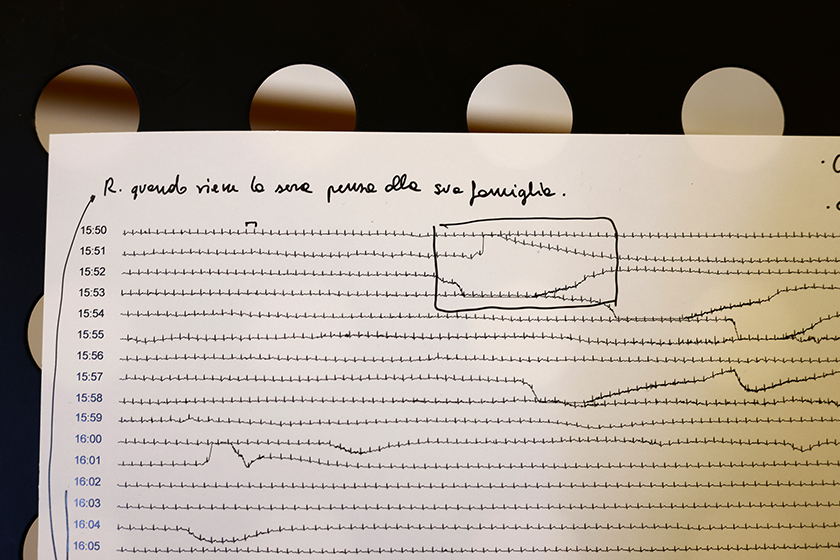 R. quando viene la sera pensa alla sua famiglia.
15:50
15:51
15:52
15:53
15:54
15:55
15:56
15:57
15:58
15:59
16:00
16:01
16:02
16:03
16:04
16:05